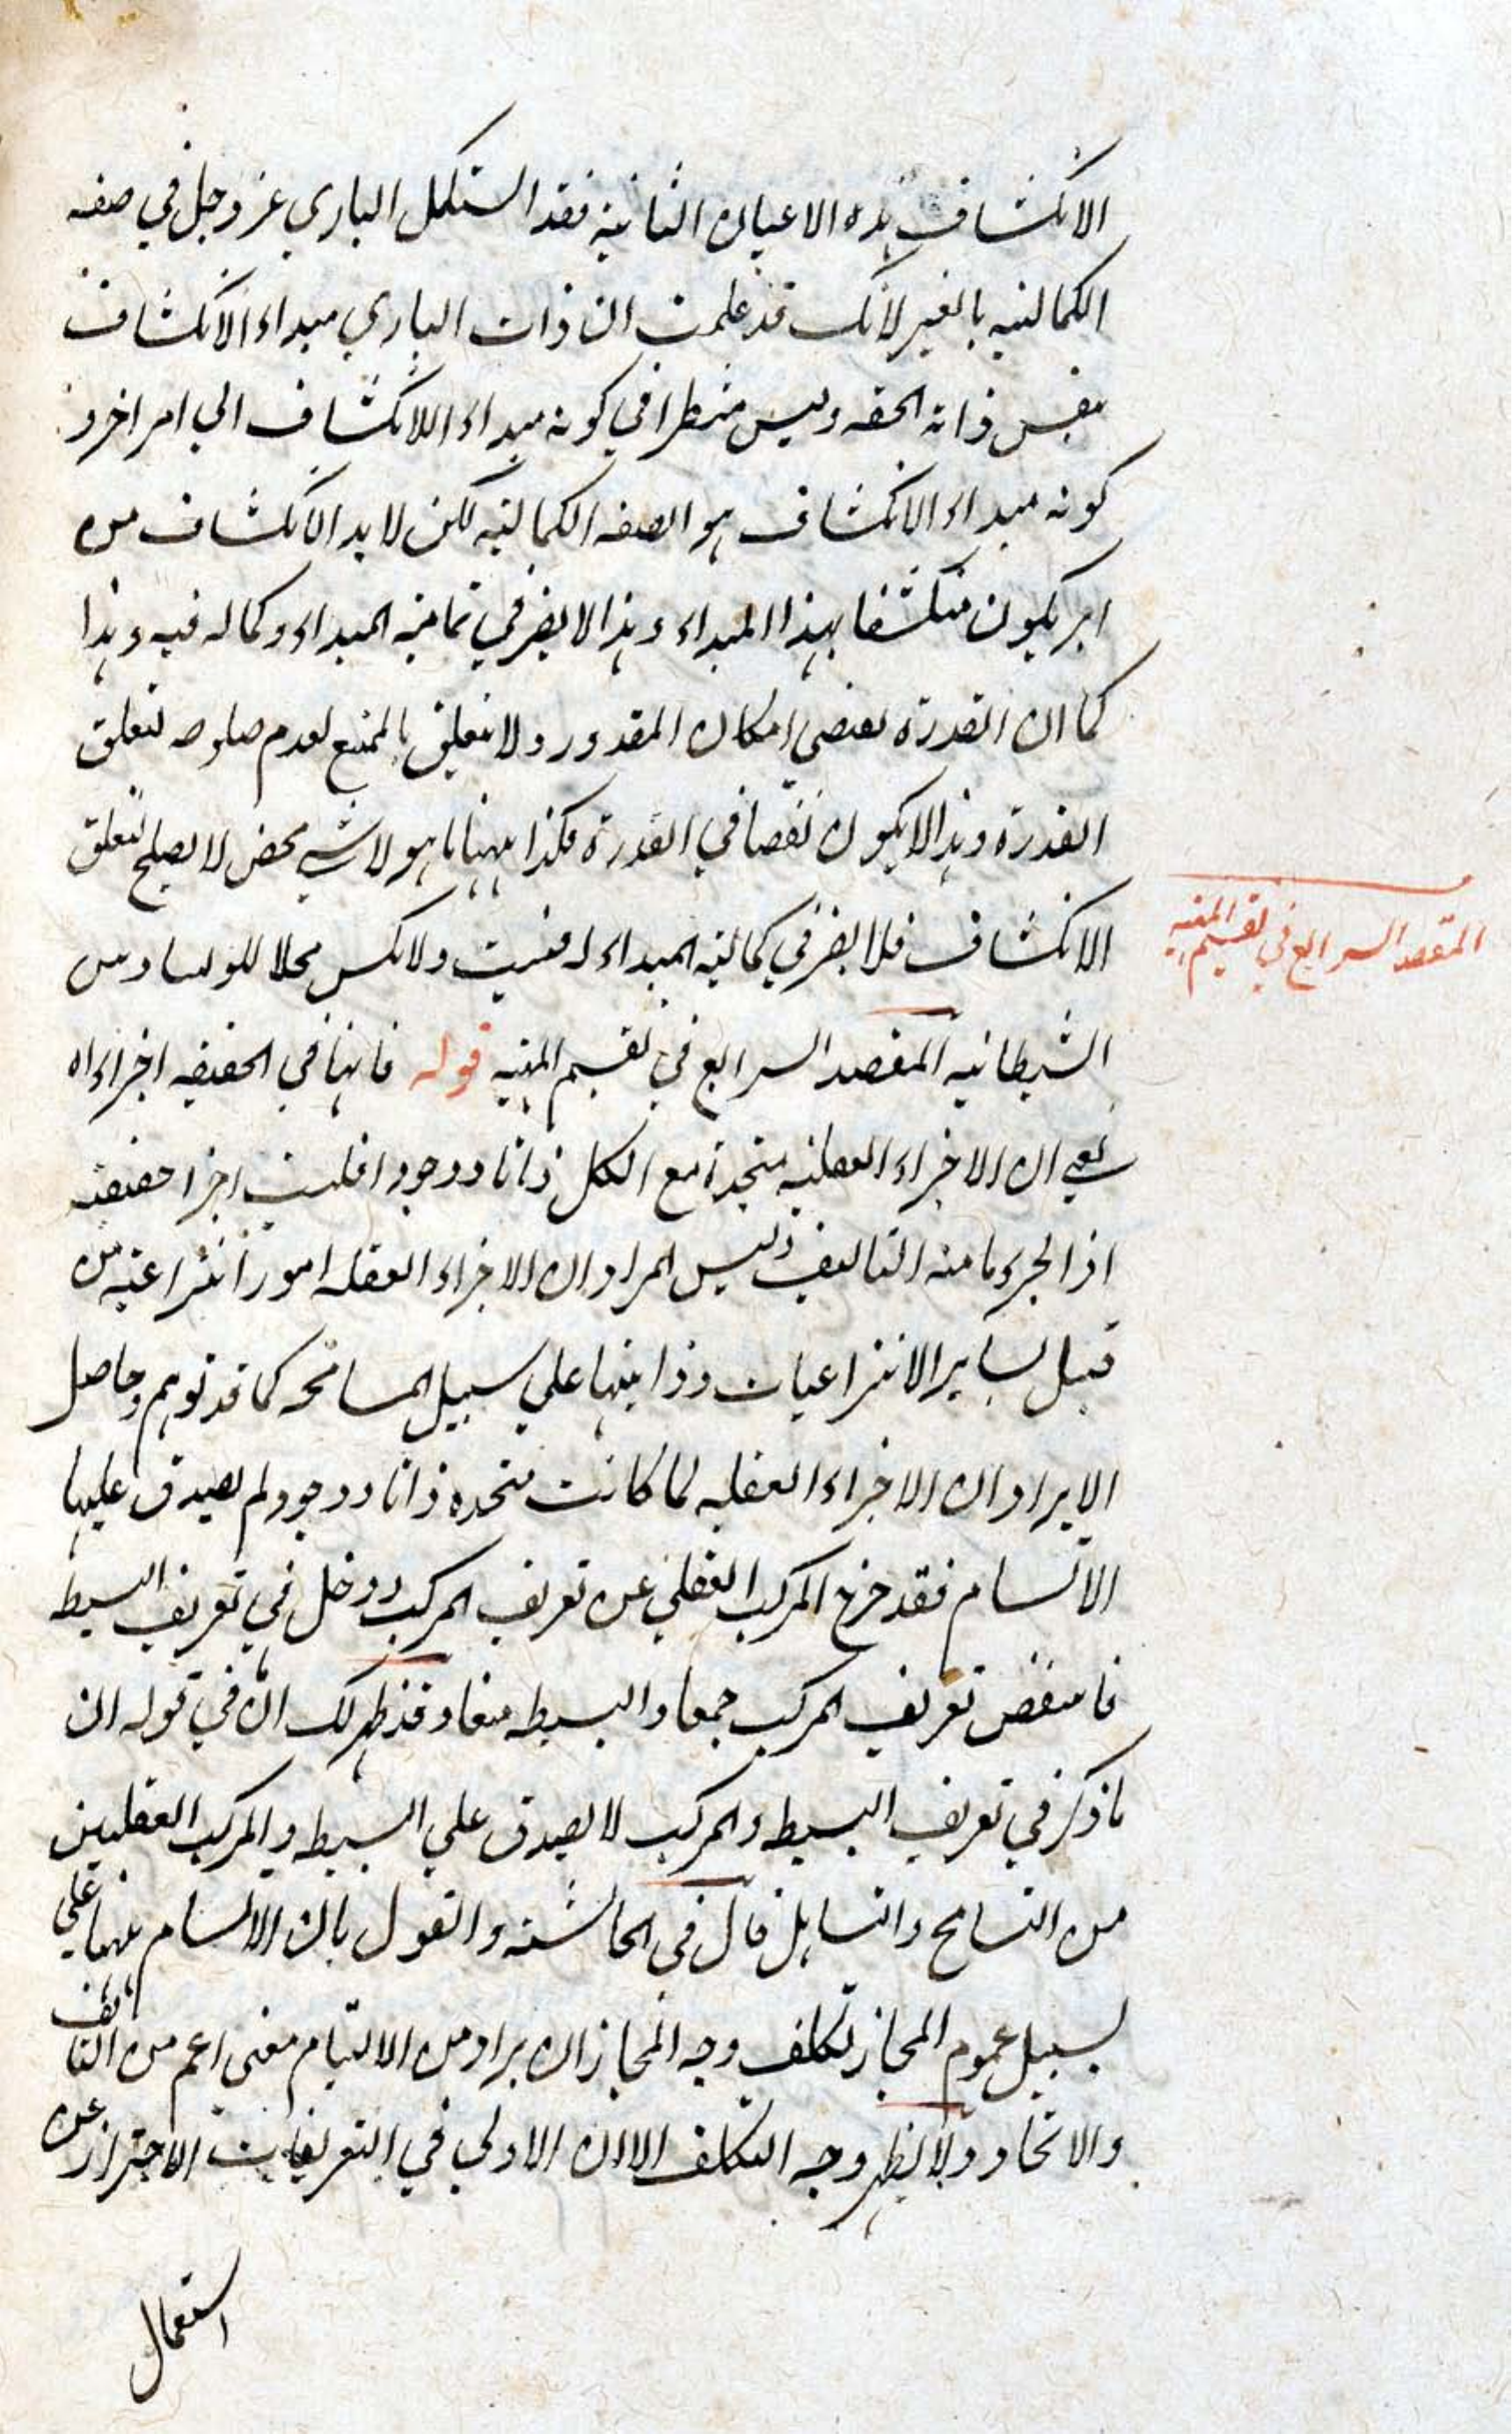 الانكشاف بهذه الاعيان الثانية فقد استكمل الباري عز وجل في صفه
الكمالية بالغير لانك قد علمت ان ذات الباري مبداء الانكشاف
بنفس ذاته الحقه وليس منتظرا في كونه مبداء اللانكشاف الي امر اخر و
كونه مبداء الانكشاف هو الصفه الكمالية لكن لا بد الانكشاف من
امر يكون منكشفا بهذا المبداء وهذا لا يضر في تمامية المبداء وكماله فيه وهذا
كما ان القدرة تقتضي امكان المقدور ولا يتعلق بالممتنع لعدم صلوحه لتعلق
القدرة وهذا لا يكون نقصا في القدرة فكذا ههنا ما هو لا شي محض لا يصلح لتعلق
الانكشاف فلا يضر في كمالية المبداء له فتثبت ولا تكن محلا للوساوس
الشيطانيه المقصد الرابع في تقسيم المهيه قوله فانها في الحقيقه اجزاء اه
يعني ان الاجزاء العقلية متحدة مع الكل ذاتا ووجودا فليست اجزا حقيقة
اذ الجزء ما منه التاليف وليس المراد ان الاجزاء العقله امور انتزاعية من
قبيل ساير الانتزاعيات وذاتيتها علي سبيل المسامحه كما قد توهم وحاصل
الايراد ان الاجزاء العقليه لما كانت متحده ذاتا ووجود لم يصدق عليها
الالتيام فقد خرج المركب العقلي عن تعريف المركب ودخل في تعريف البسيط
فانتقض تعريف المركب جمعا والبسيط منعا وقد ظهر لك ان في قوله ان
ما ذكر في تعريف البسيط والمركب لا يصدق علي البسيط والمركب العقليين
من التسامح والتساهل قال في الحاشية والقول بان الالتيام ههنا علي
سبيل عموم المجاز تكلف وجه المجاز ان يراد من الالتيام معني اعم من التاليف
والاتحاد ولا يظهر وجه التكلف الا ان الاولي في التعريفات الاحتراز عن
استعمال
المقصد الرابع في تقسيم المهيه